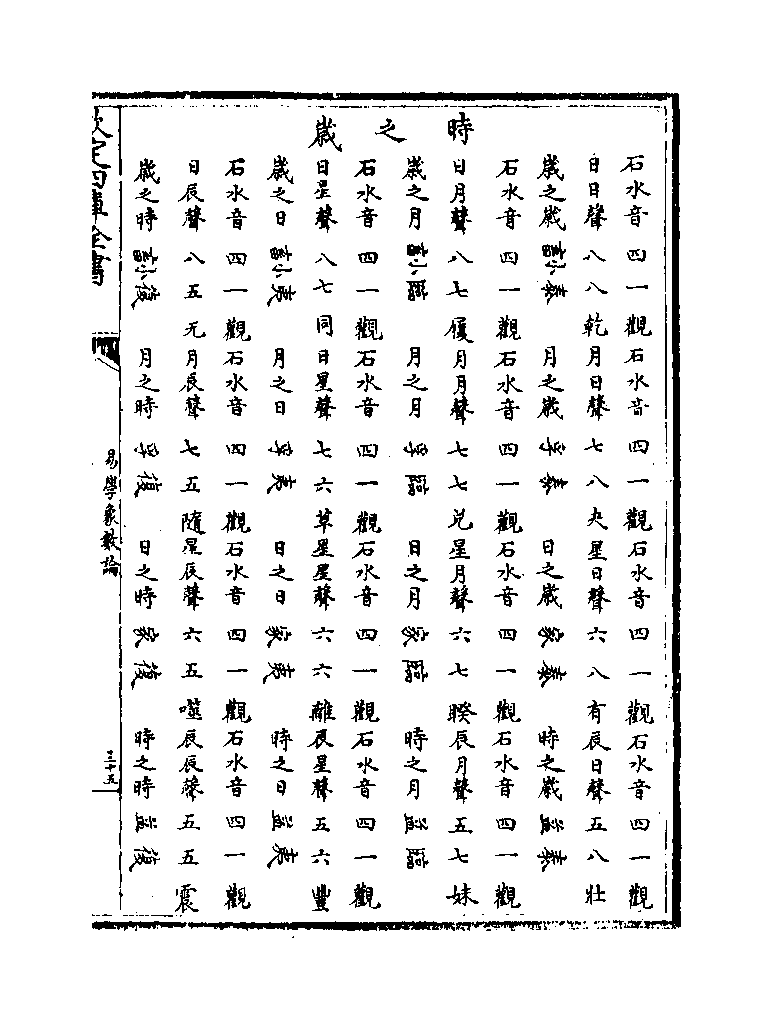 時之歲
石水音四一觀石水音四一觀石水音四一觀石水音四一觀
日日聲八八乾月日聲七八夬星日聲六八有辰日聲五八壯
歲之歲畜小泰月之歲孚泰日之歲家泰時之歲益泰
石水音四一觀石水音四一觀石水音四一觀石水音四一觀
日月聲八七履月月聲七七兌星月聲六七睽辰月聲五七妹
歲之月畜小臨月之月孚臨日之月家臨時之月益臨
石水音四一觀石水音四一觀石水音四一觀石水音四一觀
日星聲八七同日星聲七六革星星聲六六離辰星聲五六豐
歲之日畜小夷月之日孚夷日之日家夷時之日益夷
石水音四一觀石水音四一觀石水音四一觀石水音四一觀
日辰聲八五无月辰聲七五隨星辰聲六五噬辰辰聲五五震
歲之時畜小復月之時孚復日之時家復時之時益復
欽定四庫全書
易學象數論
三十五